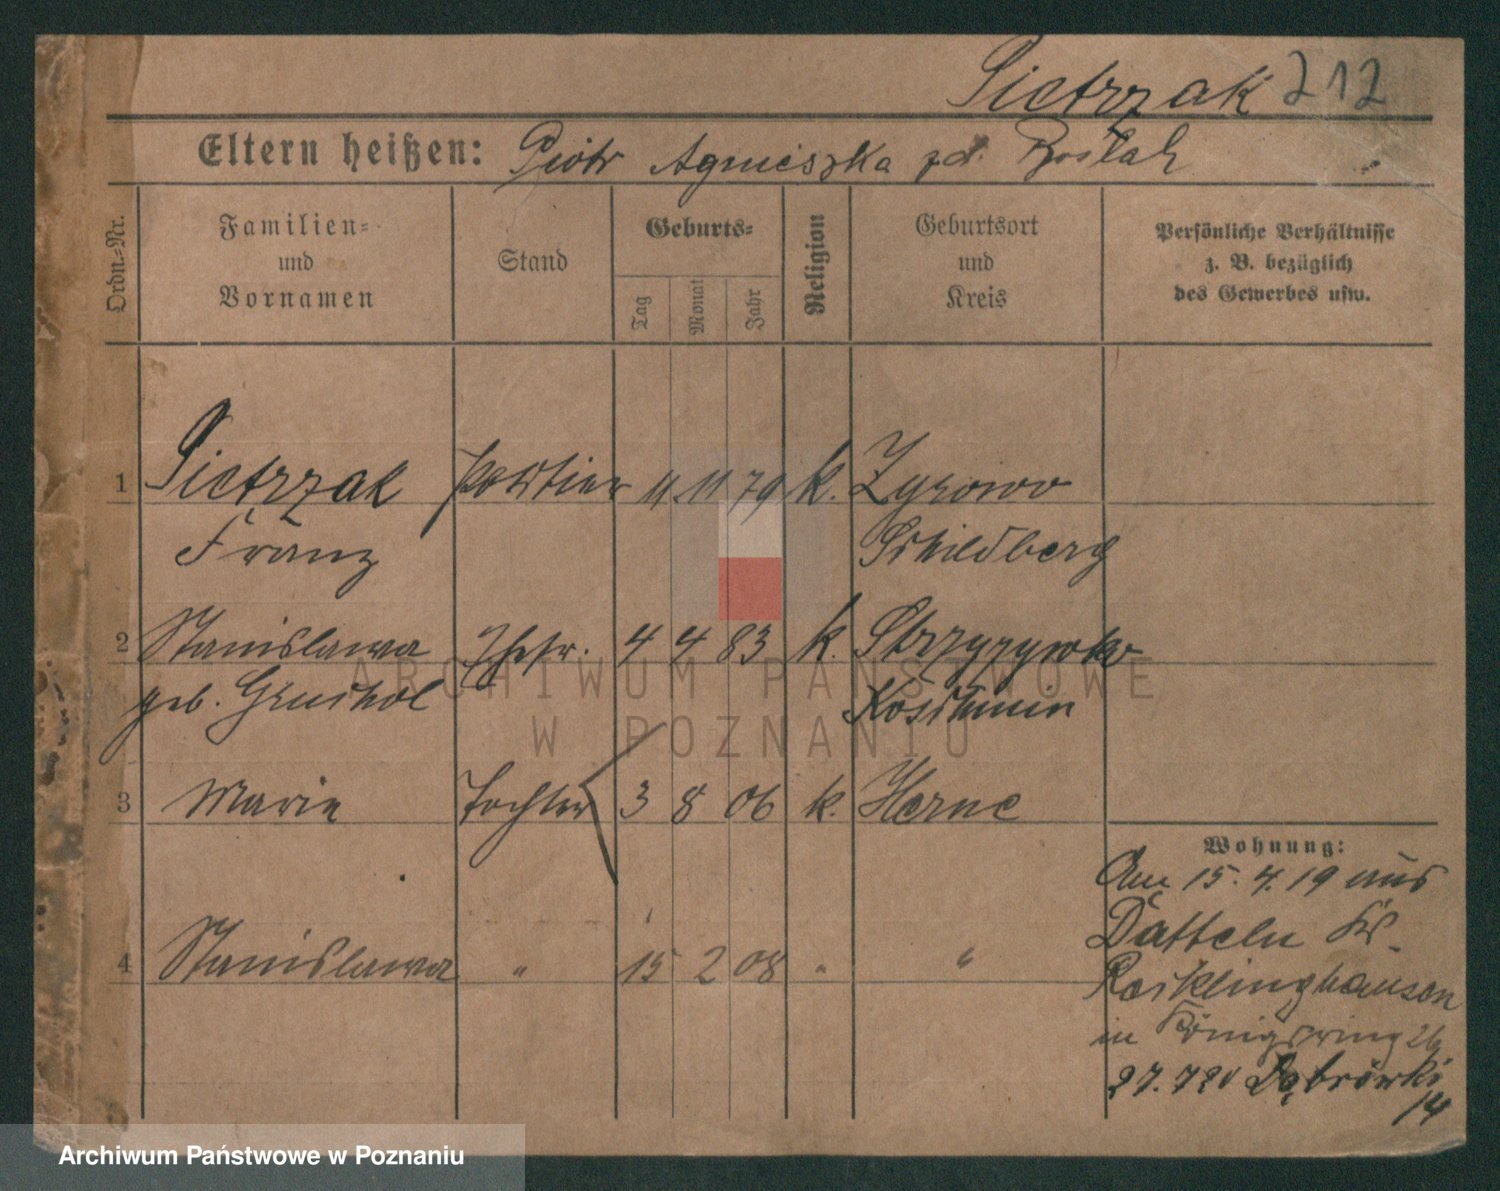 Pietrzak 212
Eltern heißen: Piotr Agnieszka zd.
Ordn.-Nr.
Familien-
und
Vornamen
Stand
Geburts-
Tag
Monat
Jahr
Religion
Geburtsort
und
Kreis
Persönliche Verhältnisse
z. B. bezüglich
des Gewerbes usw.
1 Pietrzak Portier 11 11 79 k. Zyrowo
Franz Schildberg
2 Stanislawa Ehefr. 4 4 83 k.
geb. Koschmin
3 Marie Tochter 3 8 06 k. Herne
Wohnung:
Am 15.4.19 aus
Datteln Kr.
4 Stanislawa " 15 2 08 " "
Recklinghausen
in Königsring 26
27.7 20 Dąbrówki
14
ARCHIWUM PAŃSTWOWE
W POZNANIU
Archiwum Państwowe w Poznaniu